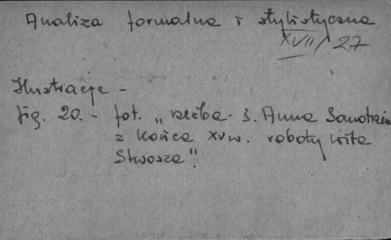 Analiza formalna i stylistyczna
XVII/27
Ilustracje -
fig. 20. - fot. „rzeźba - ś. Anna Samotrzeć
z końca XV w. roboty Wita
Stwosza".